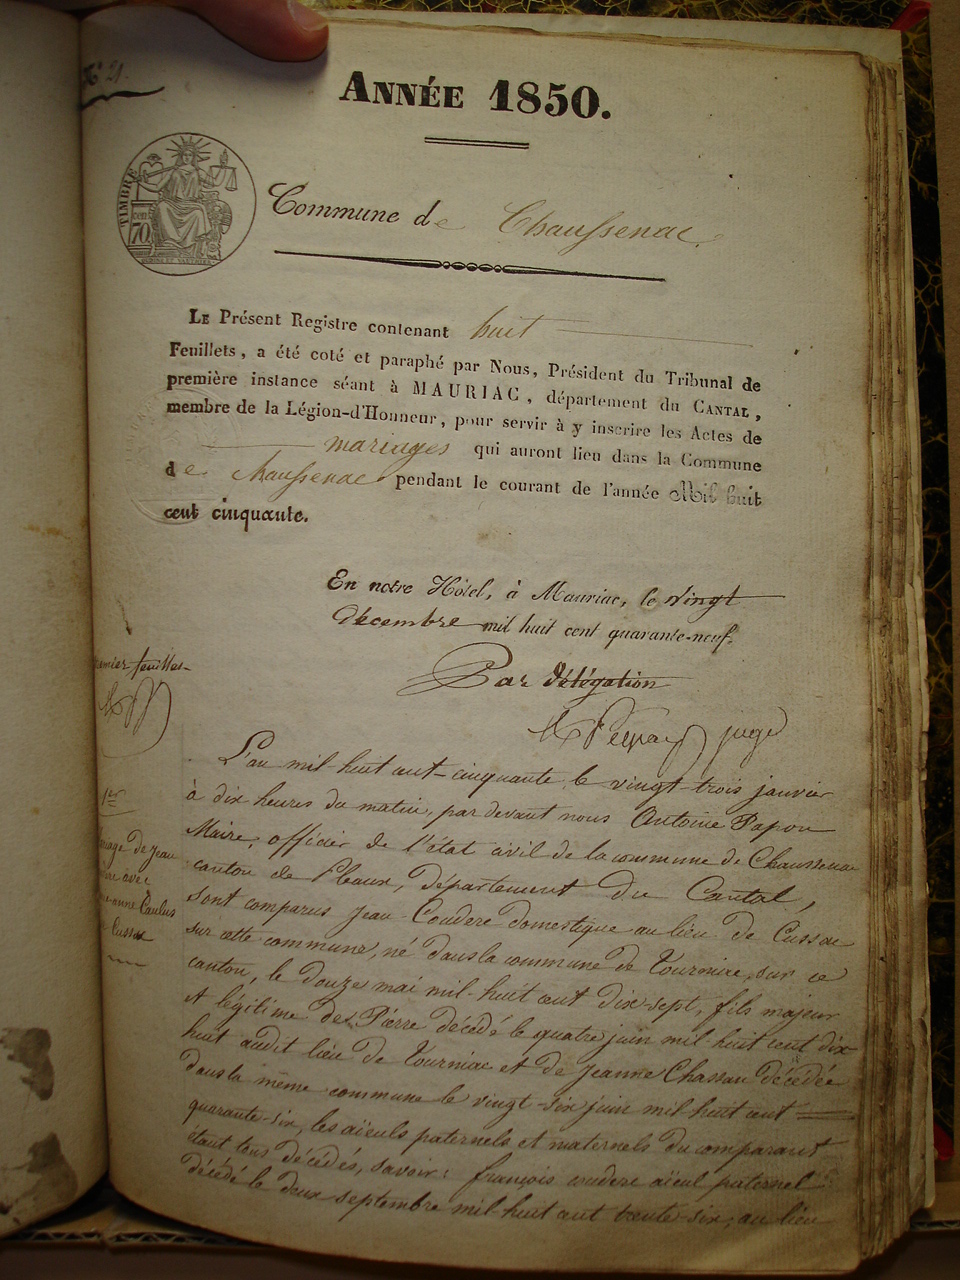 N° 21.
ANNÉE 1850.
TIMBRE
70
Commune de Chaussenac
LE Présent Registre contenant huit
Feuillets, a été coté et paraphé par Nous, Président du Tribunal de
première instance séant à MAURIAC, département du CANTAL,
membre de la Légion-d'Honneur, pour servir à y inscrire les Actes de
mariages qui auront lieu dans la Commune
de Chaussenac pendant le courant de l'année Mil huit
cent cinquante.
En notre Hôtel, à Mauriac, le vingt
décembre mil huit cent quarante-neuf.
Par délégation
juge
premier feuillet
L'an mil-huit cent-cinquante le vingt-trois janvier
à dix heures du matin, par devant nous Antoine Papon
Maire, officier de l'état civil de la commune de Chaussenac
canton de Pleaux, département du Cantal,
sont comparus Jean Coudere domestique au lieu de Cussac
sur cette commune, né dans la commune de Tourniac, sur ce
canton, le douze mai mil-huit cent dix-sept, fils majeur
et légitime de Pierre décédé le quatre juin mil-huit cent dix
huit audit lieu de Tourniac et de Jeanne Chassau décédée
dans la même commune le vingt-six juin mil huit cent
quarante-six, les aïeuls paternels et maternels du comparant
étant tous décédés, savoir: françois coudere aïeul paternel
décédé le deux septembre mil huit cent trente six, au lieu
1er
mariage de Jean
avec
anne Caulus
Cussac